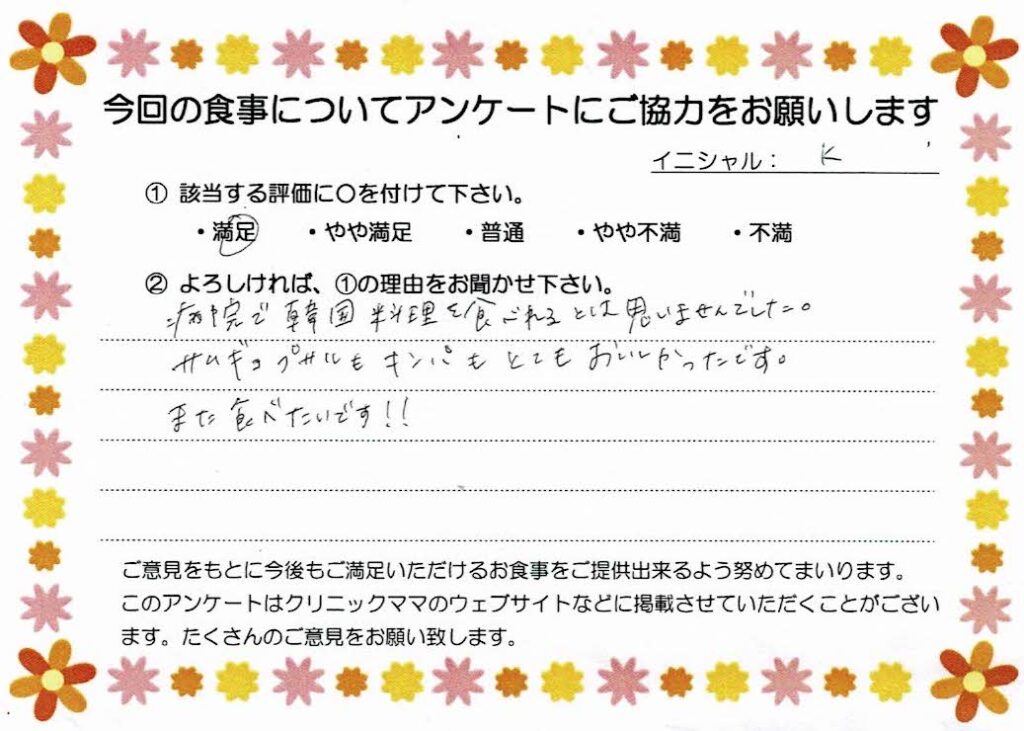 今回の食事についてアンケートにご協力をお願いします
イニシャル： K
① 該当する評価に〇を付けて下さい。
・満足 ・やや満足 ・普通 ・やや不満 ・不満
② よろしければ、①の理由をお聞かせ下さい。
病院で韓国料理を食べれるとは思いませんでした。
サムギョプサルもキンパもとてもおいしかったです。
また食べたいです!!
ご意見をもとに今後もご満足いただけるお食事をご提供出来るよう努めてまいります。
このアンケートはクリニックママのウェブサイトなどに掲載させていただくことがござい
ます。たくさんのご意見をお願い致します。